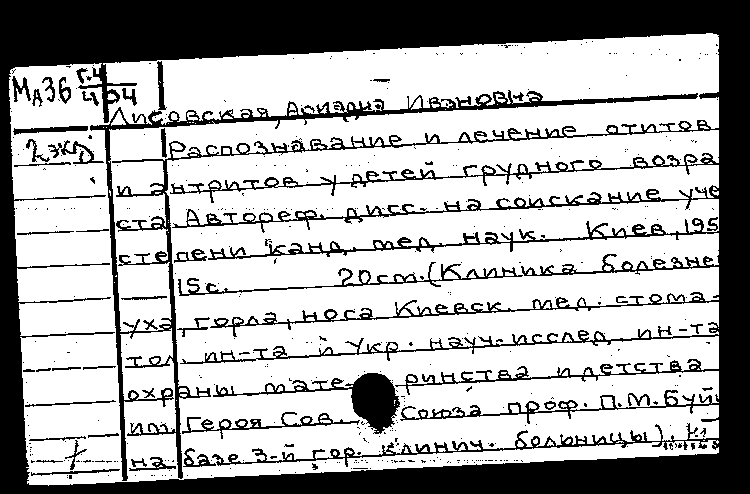 МА36 Г.4
4 04
Лисовская, Ариадна Ивановна
2 экз
Распознавание и лечение отитов
и антритов у детей грудного возра
ста. Автореф. дисс. на соискание уче
степени канд. мед. наук. Киев, 195
15с. 20cm. (Клиника болезне
уха, горла, носа Киевск. мед. стома-
тол. ин-та и Укр. науч-исслед. ин-та
охраны материнства и детства
им. Героя Сов. Союза проф. П.М. Буй
на базе 3-й гор. клинич. больницы).